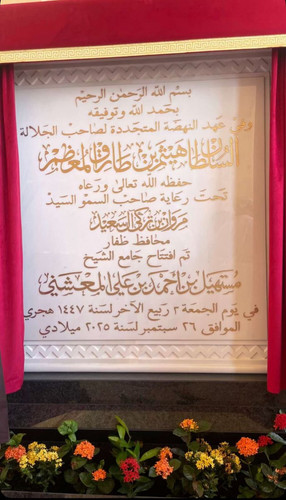 بسم الله الرحمن الرحيم
بحمد الله وتوفيقه
وفي عهد النهضة المتجددة لصاحب الجلالة
السلطان هيثم بن طارق المعظم
حفظه الله تعالى ورعاه
تحت رعاية صاحب السمو السيد
مروان بن تركي آل سعيد
محافظ ظفار
تم افتتاح جامع الشيخ
مستهيل بن أحمد بن علي المعشني
في يوم الجمعة ٣ ربيع الآخر لسنة ١٤٤٧ هجري
الموافق ٢٦ سبتمبر لسنة ٢٠٢٥ ميلادي